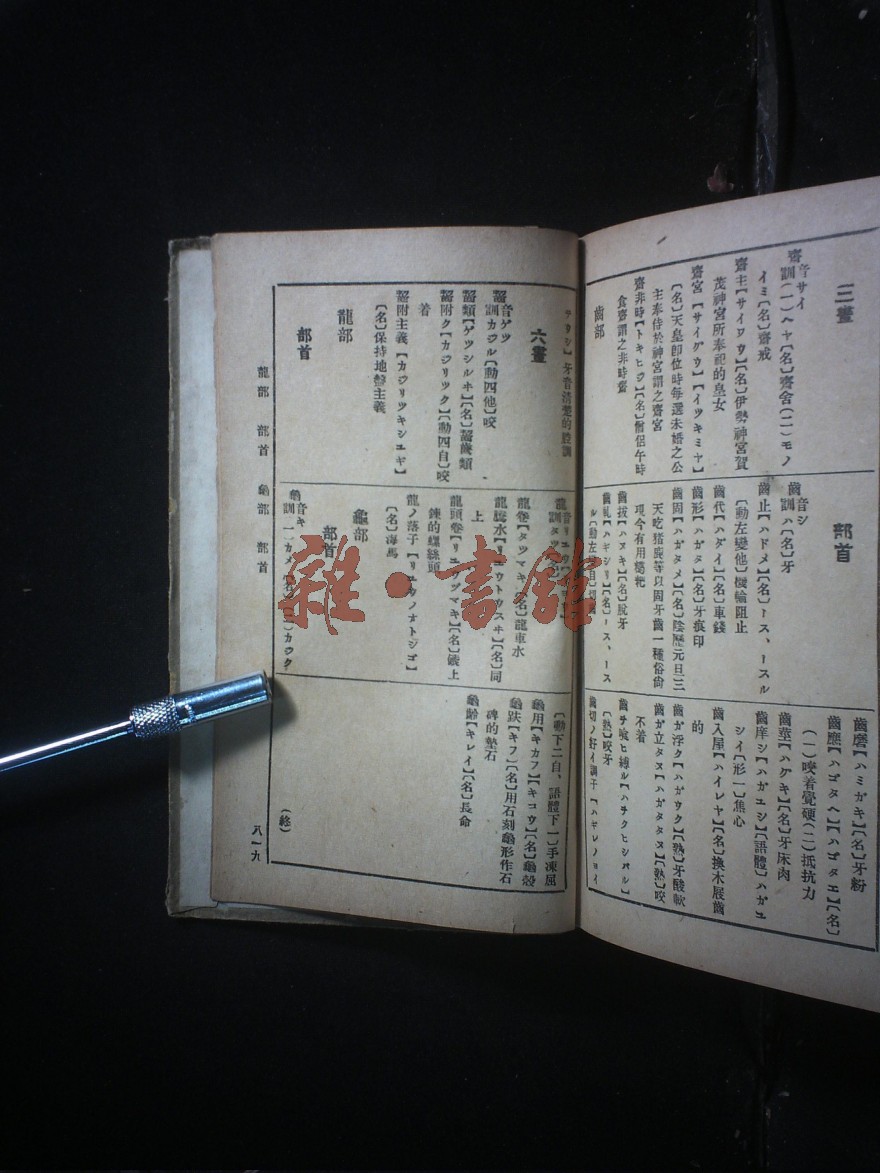 三畫
齋 音サイ
訓(一)ヘヤ【名】齋舍(二)モノ
イミ【名】齋戒
齋主【サイワウ】【名】伊勢神宮賀
茂神宮所奉祀的皇女
齋宮【サイグウ】【イツキミヤ】
【名】天皇卽位時每選未婚之公
主奉侍於神宮謂之齋宮
齋非時【トキヒジ】【名】僧侶午時
食齋謂之非時齋
齒部
部首
齒 音シ
訓ハ【名】牙
齒止【ハドメ】【名】ース、ースル
【動左變他】機輪阻止
齒代【ハダイ】【名】車錢
齒形【ハガタ】【名】牙痕印
齒固【ハガタメ】【名】陰歷元旦三
天吃猪鹿等以固牙齒一種俗尙
現今有用糍粑
齒拔【ハヌキ】【名】脫牙
齒軋【ハギシリ】【名】ース、ース
齒磨【ハミガキ】【名】牙粉
齒應【ハゴタヘ】【ハゴタヨ】【名】
(一)咬着覺硬(二)抵抗力
齒莖【ハグキ】【名】牙床肉
齒痒シ【ハガユシ】【語體】ハガユ
シイ【形一】焦心
齒入屋【ハイレヤ】【名】換木屐齒
的
齒ガ浮ク【ハガウク】【熟】牙酸軟
齒ガ立タヌ【ハガタタヌ】【熟】咬
不着
齒ヲ喰ヒ縛ル【ハヲクヒシバル】
【熟】咬牙
齒切ノ好イ調子【ハギレノヨイ
テウシ】牙音淸楚的腔調
六畫
齧 音ゲツ
訓カジル【動四他】咬
齧類【ゲツシルヰ】【名】齧齒類
齧附ク【カジリツク】【動四自】咬
着
齧附主義【カジリツキシユギ】
【名】保持地盤主義
龍部
部首
龍卷【タツマキ】【名】龍車水
龍騰水【リユウトウスヰ】【名】同
上
龍頭卷【リユウヅマキ】【名】錶上
鍊的螺絲頭
龍ノ落子【リユウノオトシゴ】
【名】海馬
龜部
部首
龜 音キ
訓(一)カメ【名】(二)カヾク
【動下二自、語體下一】手凍屈
龜甲【キカフ】【キコウ】【名】龜殼
龜趺【キフ】【名】用石刻龜形作石
碑的墊石
龜齡【キレイ】【名】長命
(終)
龍部 部首 龜部 部首
八一九
雜·書館